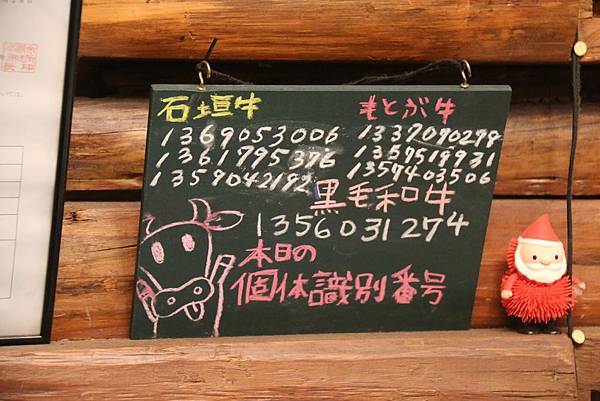 石垣牛
1369053006
1361795376
1359042192
もとぶ牛
1337090278
1357519931
1357403506
黒毛和牛
1356031274
本日の
個体識別番号